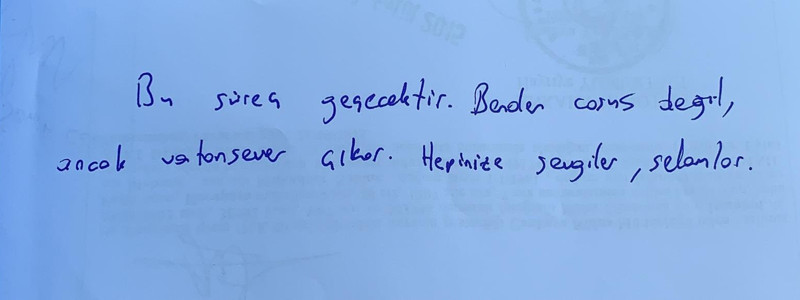 Bu süreç geçecektir. Benden casus değil,
ancak vatansever çıkar. Hepinize sevgiler, selamlar.